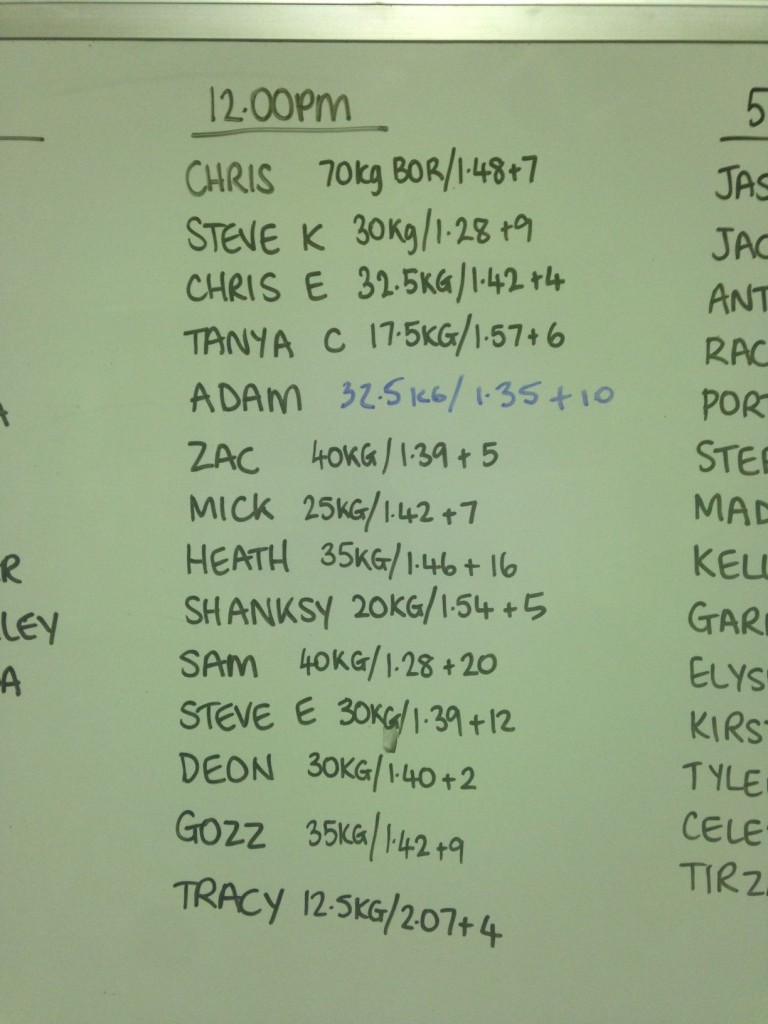 12.00PM
CHRIS 70kg BOR/1.48+7
STEVE K 30Kg/1.28+9
CHRIS E 32.5KG/1.42+4
TANYA C 17.5KG/1.57+6
ADAM 32.5KG/1.35+10
ZAC 40KG/1.39+5
MICK 25KG/1.42+7
HEATH 35KG/1.46+16
SHANKSY 20KG/1.54+5
SAM 40KG/1.28+20
STEVE E 30KG/1.39+12
DEON 30KG/1.40+2
GOZZ 35KG/1.42+9
TRACY 12.5KG/2.07+4
A
R
LEY
A
5
JAS
JAC
ANT
RAC
PORT
STEP
MAD
KELL
GAR
ELYS
KIRST
TYLE
CELE
TIRZ